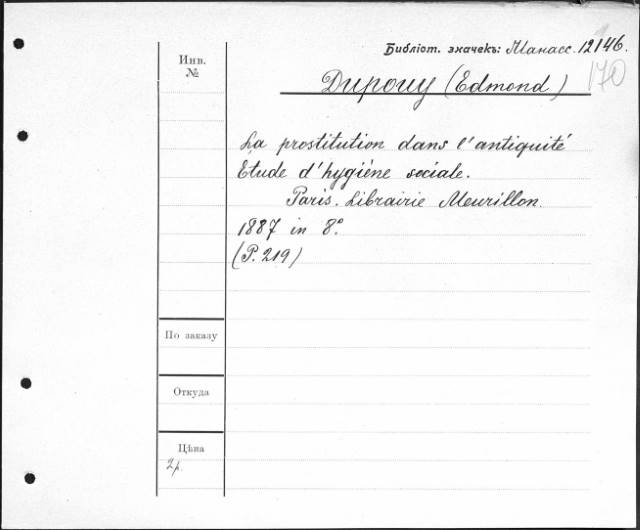 Библіот. значекъ: Манасс. 12146.
170
Инв.
№
Dupouy (Edmond)
La prostitution dans l'antiquité
Etude d'hygiène sociale.
Paris. Librairie Meurillon
1887 in 8º.
(P. 219)
По заказу
Откуда
Цѣна
2р.